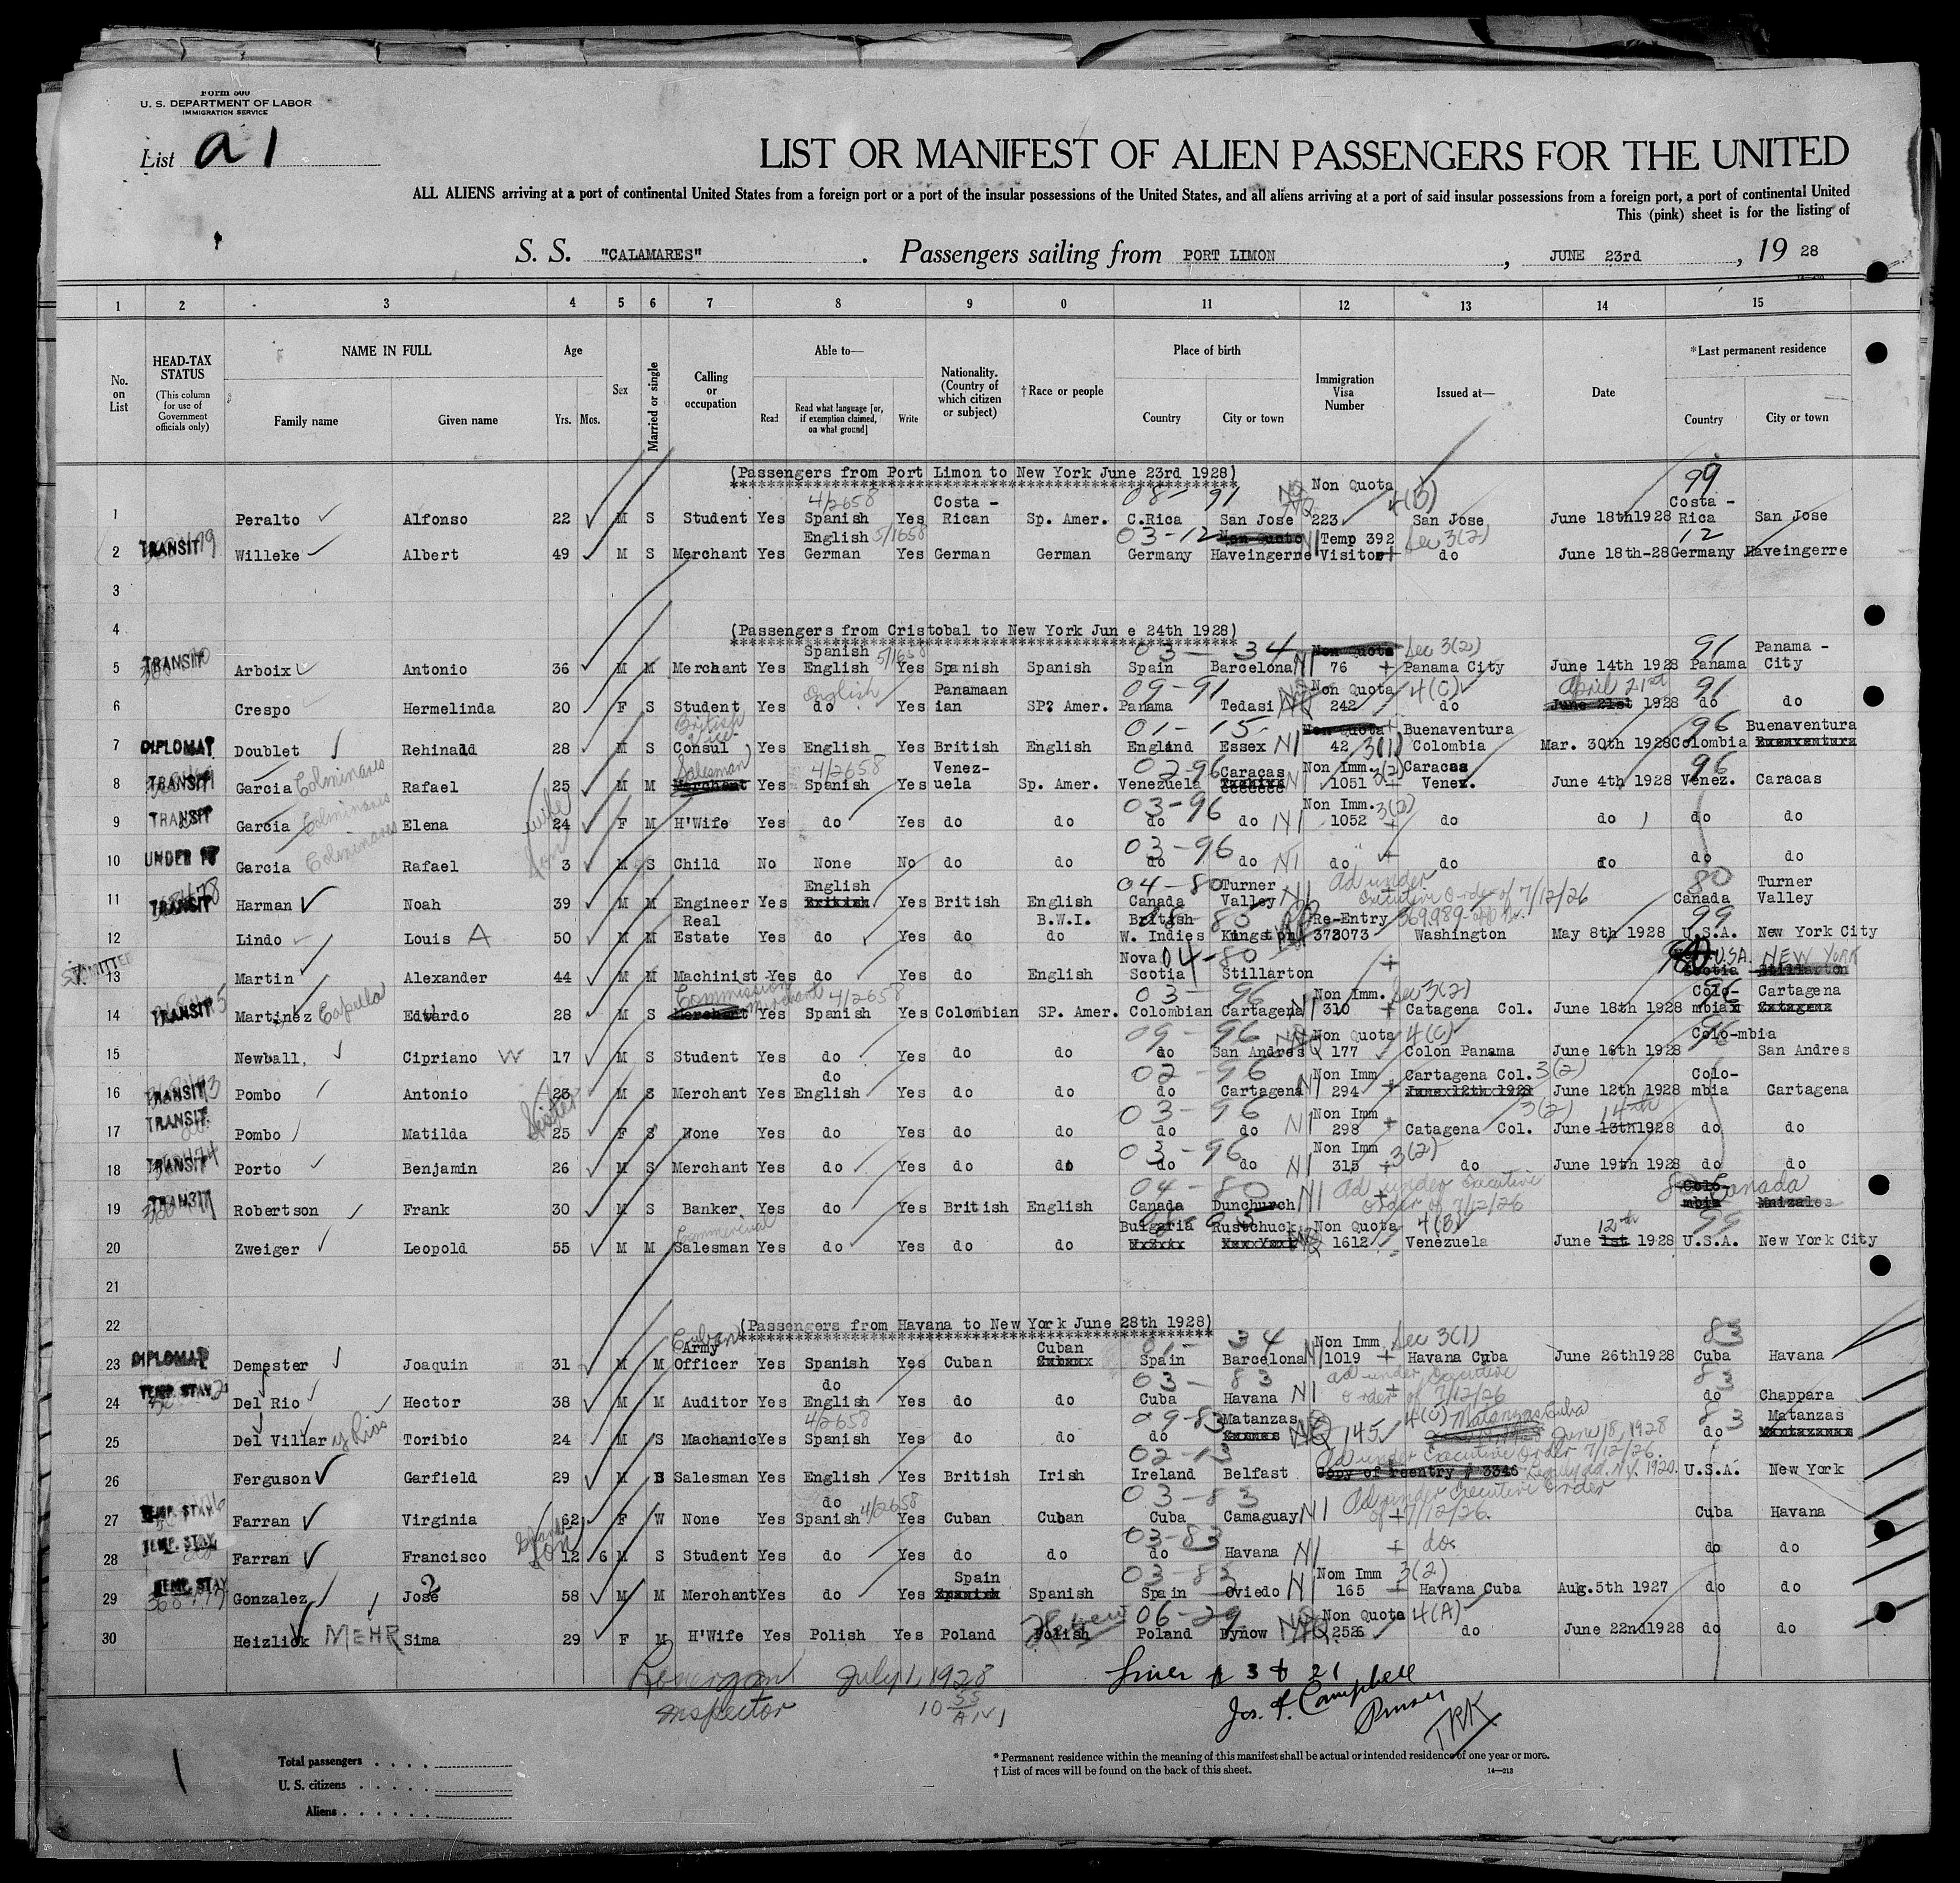 Form 500
U. S. DEPARTMENT OF LABOR
IMMIGRATION SERVICE
List a 1
LIST OR MANIFEST OF ALIEN PASSENGERS FOR THE UNITED
ALL ALIENS arriving at a port of continental United States from a foreign port or a port of the insular possessions of the United States, and all aliens arriving at a port of said insular possessions from a foreign port, a port of continental United
This (pink) sheet is for the listing of
S. S. "CALAMARES". Passengers sailing from PORT LIMON, JUNE 23rd, 19 28
1 2 3 4 5 6 7 8 9 0 11 12 13 14 15
No. on List
HEAD-TAX STATUS
(This column for use of Government officials only)
NAME IN FULL
Family name Given name
Age
Yrs. Mos.
Sex
Married or single
Calling or occupation
Able to—
Read Read what language [or, if exemption claimed, on what ground] Write
Nationality. (Country of which citizen or subject)
†Race or people
Place of birth
Country City or town
Immigration Visa Number
Issued at—
Date
*Last permanent residence
Country City or town
(Passengers from Port Limon to New York June 23rd 1928)
4/2658 Costa - 08- 91 NQ Non Quota 4(D) 99 Costa -
1 Peralto Alfonso 22 M S Student Yes Spanish Yes Rican Sp. Amer. C.Rica San Jose 223 San Jose June 18th1928 Rica San Jose
English 5/1658 03-12 Non Quota N1 Temp 392 Sec 3(2) 12
2 TRANSIT Willeke Albert 49 M S Merchant Yes German Yes German German Germany Haveingerne Visitor+ do June 18th-28 Germany Haveingerre
3
4 (Passengers from Cristobal to New York Jun e 24th 1928)
Spanish 5/1658 03- 34 Non Quota Sec 3(2) 91 Panama -
5 TRANSIT Arboix Antonio 36 M M Merchant Yes English Yes Spanish Spanish Spain Barcelona N1 76 + Panama City June 14th 1928 Panama City
English Panamaan 09-91 NQ Non Quota 4(C) April 21st 91
6 Crespo Hermelinda 20 F S Student Yes do Yes ian SP? Amer. Panama Tedasi 242 do June 21st 1928 do do
British Vice 01- 15- Non Quota + Buenaventura 96 Buenaventura
7 DIPLOMAT Doublet Rehinadd 28 M S Consul Yes English Yes British English England Essex N1 42 3(1) Colombia Mar. 30th 1928 Colombia Buenaventura
Salesman 4/2658 Venez- 02-96 Caracas Non Imm. 3(2) Caracas 96
8 TRANSIT Garcia Colminares Rafael 25 M M Merchant Yes Spanish Yes uela Sp. Amer. Venezuela N1 1051 Venez. June 4th 1928 Venez. Caracas
wife 03-96 Non Imm. 3(2)
9 TRANSIT Garcia Colminares Elena 24 F M H'Wife Yes do Yes do do do do N1 1052 + do do do do
son 03-96
10 UNDER 16 Garcia Colminares Rafael 3 M S Child No None No do do do do N1 do + do do do do
English 04-80 Turner Ad under Executive Order of 7/12/26 80 Turner
11 TRANSIT Harman Noah 39 M M Engineer Yes British Yes British English Canada Valley N1 Canada Valley
Real B.W.I. British Re-Entry 99
12 Lindo Louis A 50 M M Estate Yes do Yes do do W. Indies Kingston 373073 Washington May 8th 1928 U.S.A. New York City
Nova 04-80 + U.S.A. NEW YORK
13 Martin Alexander 44 M M Machinist Yes do Yes do English Scotia Stillarton Scotia Stillarton
Commission Merchant 4/2658 03- 96 Non Imm. Sec 3(2) Colo- Cartagena
14 TRANSIT Martinez Capella Edwardo 28 M S Merchant Yes Spanish Yes Colombian SP. Amer. Colombian Cartagena N1 310 + Catagena Col. June 18th 1928 mbian Catagena
09-96 NQ Non Quota 4(C) 96 Colo-mbia
15 Newball, Cipriano W 17 M S Student Yes do Yes do do do San Andres 177 Colon Panama June 16th 1928 San Andres
do 02-96 Non Imm Cartagena Col. 3(2) Colo-
16 TRANSIT Pombo Antonio 23 M S Merchant Yes English Yes do do do Cartagena N1 294 + June 12th 1928 June 12th 1928 mbia Cartagena
Sister 03-96 Non Imm 3(2) 14th
17 TRANSIT Pombo Matilda 25 F S None Yes do Yes do do do do N1 298 + Catagena Col. June 13th1928 do do
03-96 Non Imm 3(2)
18 TRANSIT Porto Benjamin 26 M S Merchant Yes do Yes do do do do N1 315 + do June 19th 1928 do do
04-80 Ad under Executive Order of 7/12/26 80 Canada Colo-
19 TRANSIT Robertson Frank 30 M S Banker Yes do Yes British English Canada Dunchurch N1 mbia Mnizales
Commercial Bulgaria Rustchuck Non Quota 4(B) 12th 99
20 Zweiger Leopold 55 M M Salesman Yes do Yes do do NQ 1612 Venezuela June 1st 1928 U.S.A. New York City
21
22 (Passengers from Havana to New York June 28th 1928)
Cuban Army Cuban 01- 34 Non Imm Sec 3(1) 83
23 DIPLOMAT Demester Joaquin 31 M M Officer Yes Spanish Yes Cuban Spain Barcelona N1 1019 + Havana Cuba June 26th1928 Cuba Havana
do 03- 83 ad under Executive order of 7/12/26 83
24 TEMP. STAY Del Rio Hector 38 M M Auditor Yes English Yes do do Cuba Havana N1 do Chappara
4/2658 09-83 Matanzas 4(C) Matanzas Cuba June 18, 1928 83 Matanzas
25 Del Villar y Rios Toribio 24 M S Machanic Yes Spanish Yes do do do NQ 145 do
02-13 Ad under Executive Order 7/12/26.
26 Ferguson Garfield 29 M S Salesman Yes English Yes British Irish Ireland Belfast Copy of reentry # 3346 N.Y. 1920. U.S.A. New York
do 4/2658 03-83 Ad under Executive Order of 7/12/26.
27 TEMP. STAY Farran Virginia 62 F W None Yes Spanish Yes Cuban Cuban Cuba Camaguay N1 + Cuba Havana
Grand son 03-83
28 TEMP. STAY Farran Francisco 12 6 M S Student Yes do Yes do do do Havana N1 + do. do do
Spain 03-83 Nom Imm 3(2)
29 TEMP. STAY Gonzalez José 58 M M Merchant Yes do Yes Spanish Spanish Spain Oviedo N1 165 Havana Cuba Aug. 5th 1927 do do
Hebrew 06-29 NQ Non Quota 4(A)
30 Heizlick MEHR Sima 29 F M H'Wife Yes Polish Yes Poland Polish Poland Dynow 2526 do June 22nd1928 do do
Inspector July 1, 1928
Lines # 3 & 21
Jos. F. Campbell
Purser
TKK
1
Total passengers
U. S. citizens
Aliens
* Permanent residence within the meaning of this manifest shall be actual or intended residence of one year or more.
† List of races will be found on the back of this sheet.
14—213